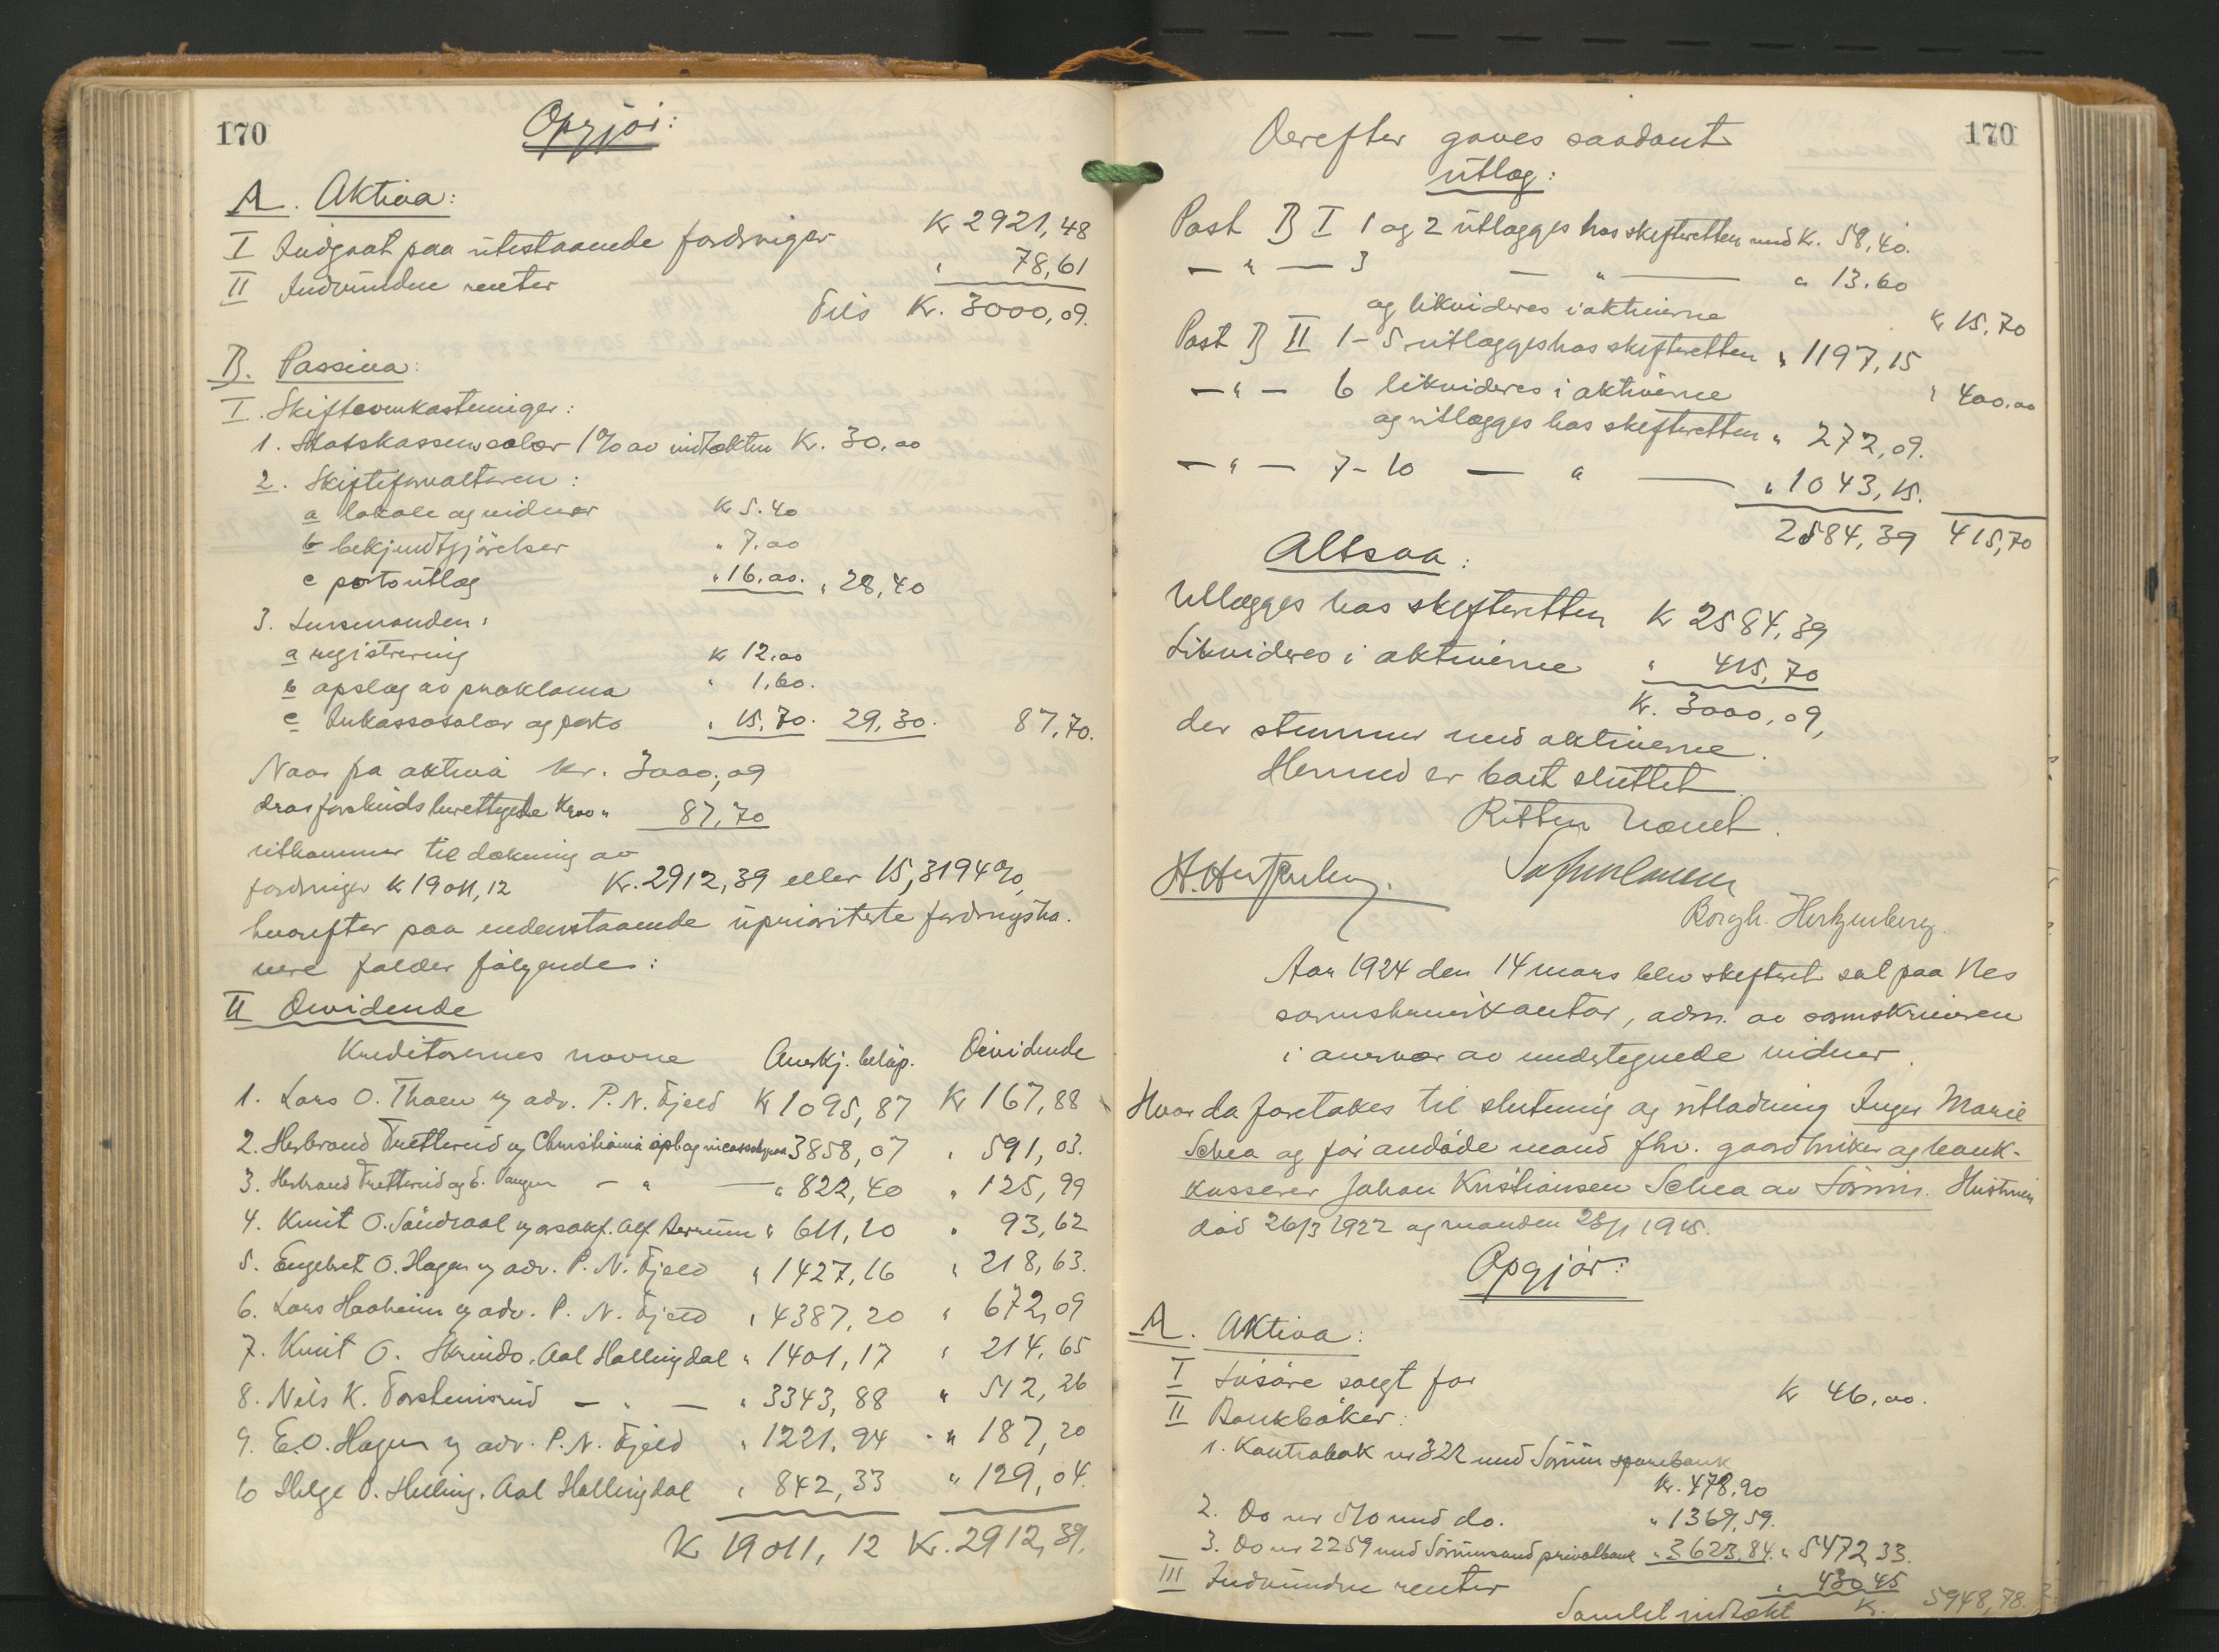 170
Opgjör:
A. Aktiva:
I Indgaat paa utestaaende fordringer Kr 2921,48
II Indvundne renter " 78,61
Tils Kr. 3000,09.
B. Passiva:
I. Skifteomkostninger:
1. Statskassens salær 1% av indtækten Kr. 30.00
2. Skifteforvalteren:
a lokale og vidner Kr 5.40
b bekjendtgjörelser " 7.00
c porto utlæg " 16.00. " 28,40
3. Lensmanden:
a registrering Kr 12.00
b opslag av proklama " 1,60.
c Inkassosalær og porto " 15.70. 29,30. 87,70.
Naar fra aktiva kr. 3000,09
dras forskuds berettigede krav " 87,70
utkommer til dækning av
fordringer kr 19011,12 Kr. 2912,39 eller 15,3194%,
hvorefter paa nedenstaaende upriviterte fordringsha-
vere falder følgende:
II Dividende
Kreditorernes navne Anerkj. beløp. Dividende
1. Lars O. Thoen v/ adv. P. N. Fjeld Kr 1095,87 Kr 167,88
2. Herbrand Trettereid v/ Christiania opl. og 3858,07 " 591,03.
3. Herbrand Trettereid og E. Vangen — " — " 822,40 " 125,99
4. Knut O. Sundraal v/ o.sakf. Alf " 611,10 " 93,62
5. Engebret O. Hagen v/ adv. P. N. Fjeld " 1427,16 " 218,63.
6. Lars Haaheim v/ adv. P. N. Fjeld " 4387,20 " 672,09
7. Knut O. Skrindo, Aal Hallingdal " 1401,17 " 214,65
8. Nils K. Torsteinsrud — " — " 3343,88 " 512,26
9. E. O. Hagen v/ adv. P. N. Fjeld " 1221,94 " 187,20
10 Helge O. Helling, Aal Hallingdal " 842,33 " 129,04.
Kr 19011,12 Kr. 2912,39.
170
Derefter gaves saadant
utlæg:
Post B I 1 og 2 utlægges hos skifteretten med Kr. 58,40.
— " — 3 — " — " 13.60
og likvideres i aktiverne Kr 15.70
Post B II 1-5 utlægges hos skifteretten " 1197,15
— " — 6 likvideres i aktiverne " 400.00
og utlægges hos skifteretten " 272,09.
— " — 7-10 — " — " 1043,15.
2584,39 415,70
Altsaa:
Utlægges hos skifteretten Kr 2584,39
Likvideres i aktiverne " 415,70
Kr. 3000,09,
der stemmer med aktiverne.
Hermed er boet sluttet.
Retten hævet.
H. Hertzenberg.
Borgh. Hertzenberg.
Aar 1924 den 14 mars blev skifteret sat paa Nes
sorenskriverkontor, adm. av sorenskriveren
i overvær av undertegnede vidner.
Hvor da foretakes til slutning og utlodning Inger Marie
Schea og før avdøde mand fhv. gaardbruker og bank-
kasserer Johan Kristiansen Schea av Sørum. Hustruen
död 26/3 1922 og manden 28/1 1915.
Opgjör:
A. Aktiva:
I Løsøre solgt for Kr 46.00.
II Bankbøker:
1. Kontrabok nr 322 med Sörum sparebank
Kr. 478,90
2. Do nr 510 med do. " 1369,59.
3. Do nr 2259 med Sörumsand privatbank " 3623,84. " 5472,33.
III Indvundne renter " 430,45
Samlet indtækt Kr. 5948,78.